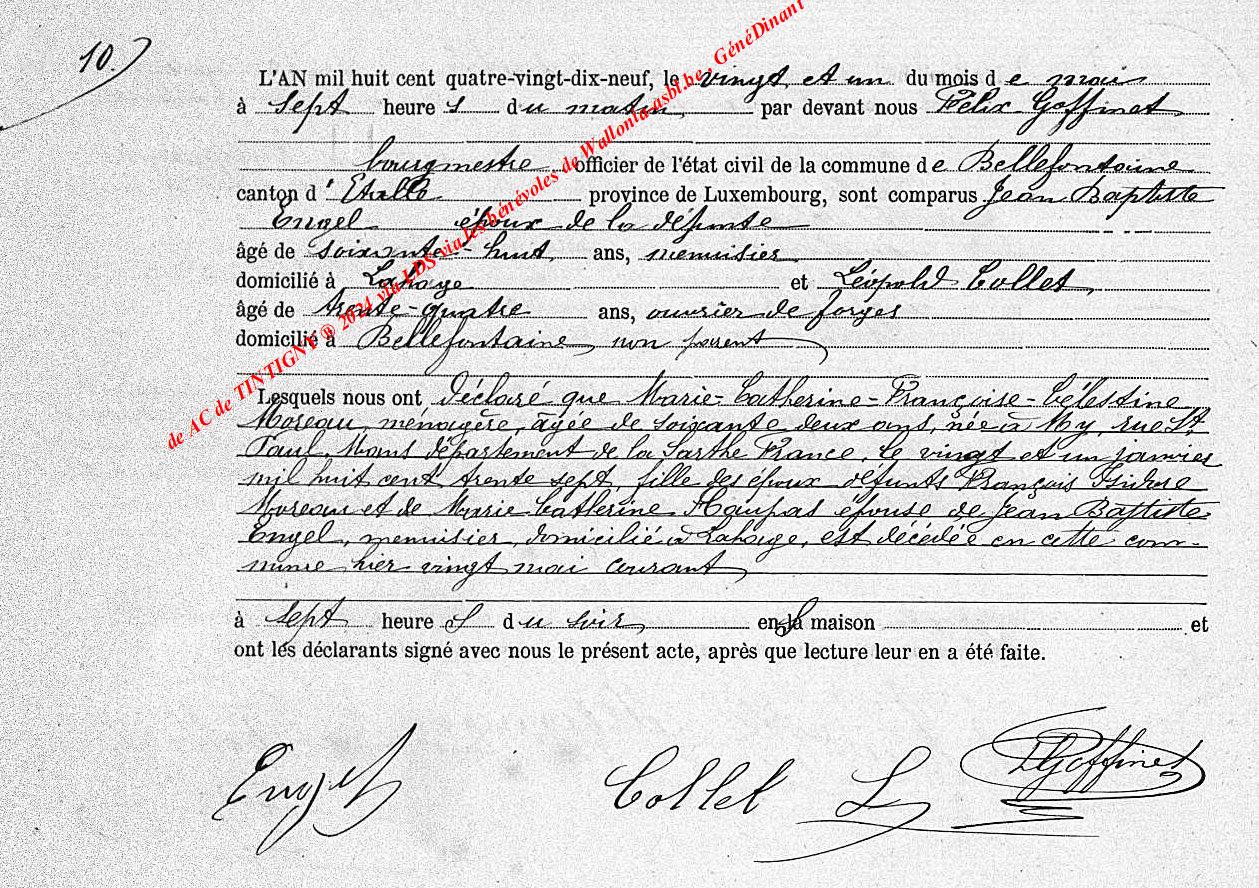 10.
L'AN mil huit cent quatre-vingt-dix-neuf, le vingt et un du mois de mai
à sept heure s du matin, par devant nous Félix Goffinet
bourgmestre officier de l'état civil de la commune de Bellefontaine
canton d'Etalle province de Luxembourg, sont comparus Jean Baptiste
Engel époux de la défunte
âgé de soixante-huit ans, menuisier
domicilié à Lahage et Léopold Collet,
âgé de trente-quatre ans, ouvrier de forges
domicilié à Bellefontaine, non parent
Lesquels nous ont déclaré que Marie-Catherine-Françoise-Célestine
Moreau, ménagère, âgée de soixante deux ans, née à My, rue St
Paul, Mans département de la Sarthe France, le vingt et un janvier
mil huit cent trente sept, fille des époux défunts François Isidore
Moreau et de Marie Catherine Haupas épouse de Jean Baptiste
Engel, menuisier, domicilié à Lahage, est décédée en cette com-
mune hier vingt mai courant
à sept heure s du soir, en sa maison et
ont les déclarants signé avec nous le présent acte, après que lecture leur en a été faite.
Engel Collet L FGoffinet
de AC de TINTIGNY ® 2024 via LDS via les bénévoles de Wallonia-asbl.be - GénéDinant